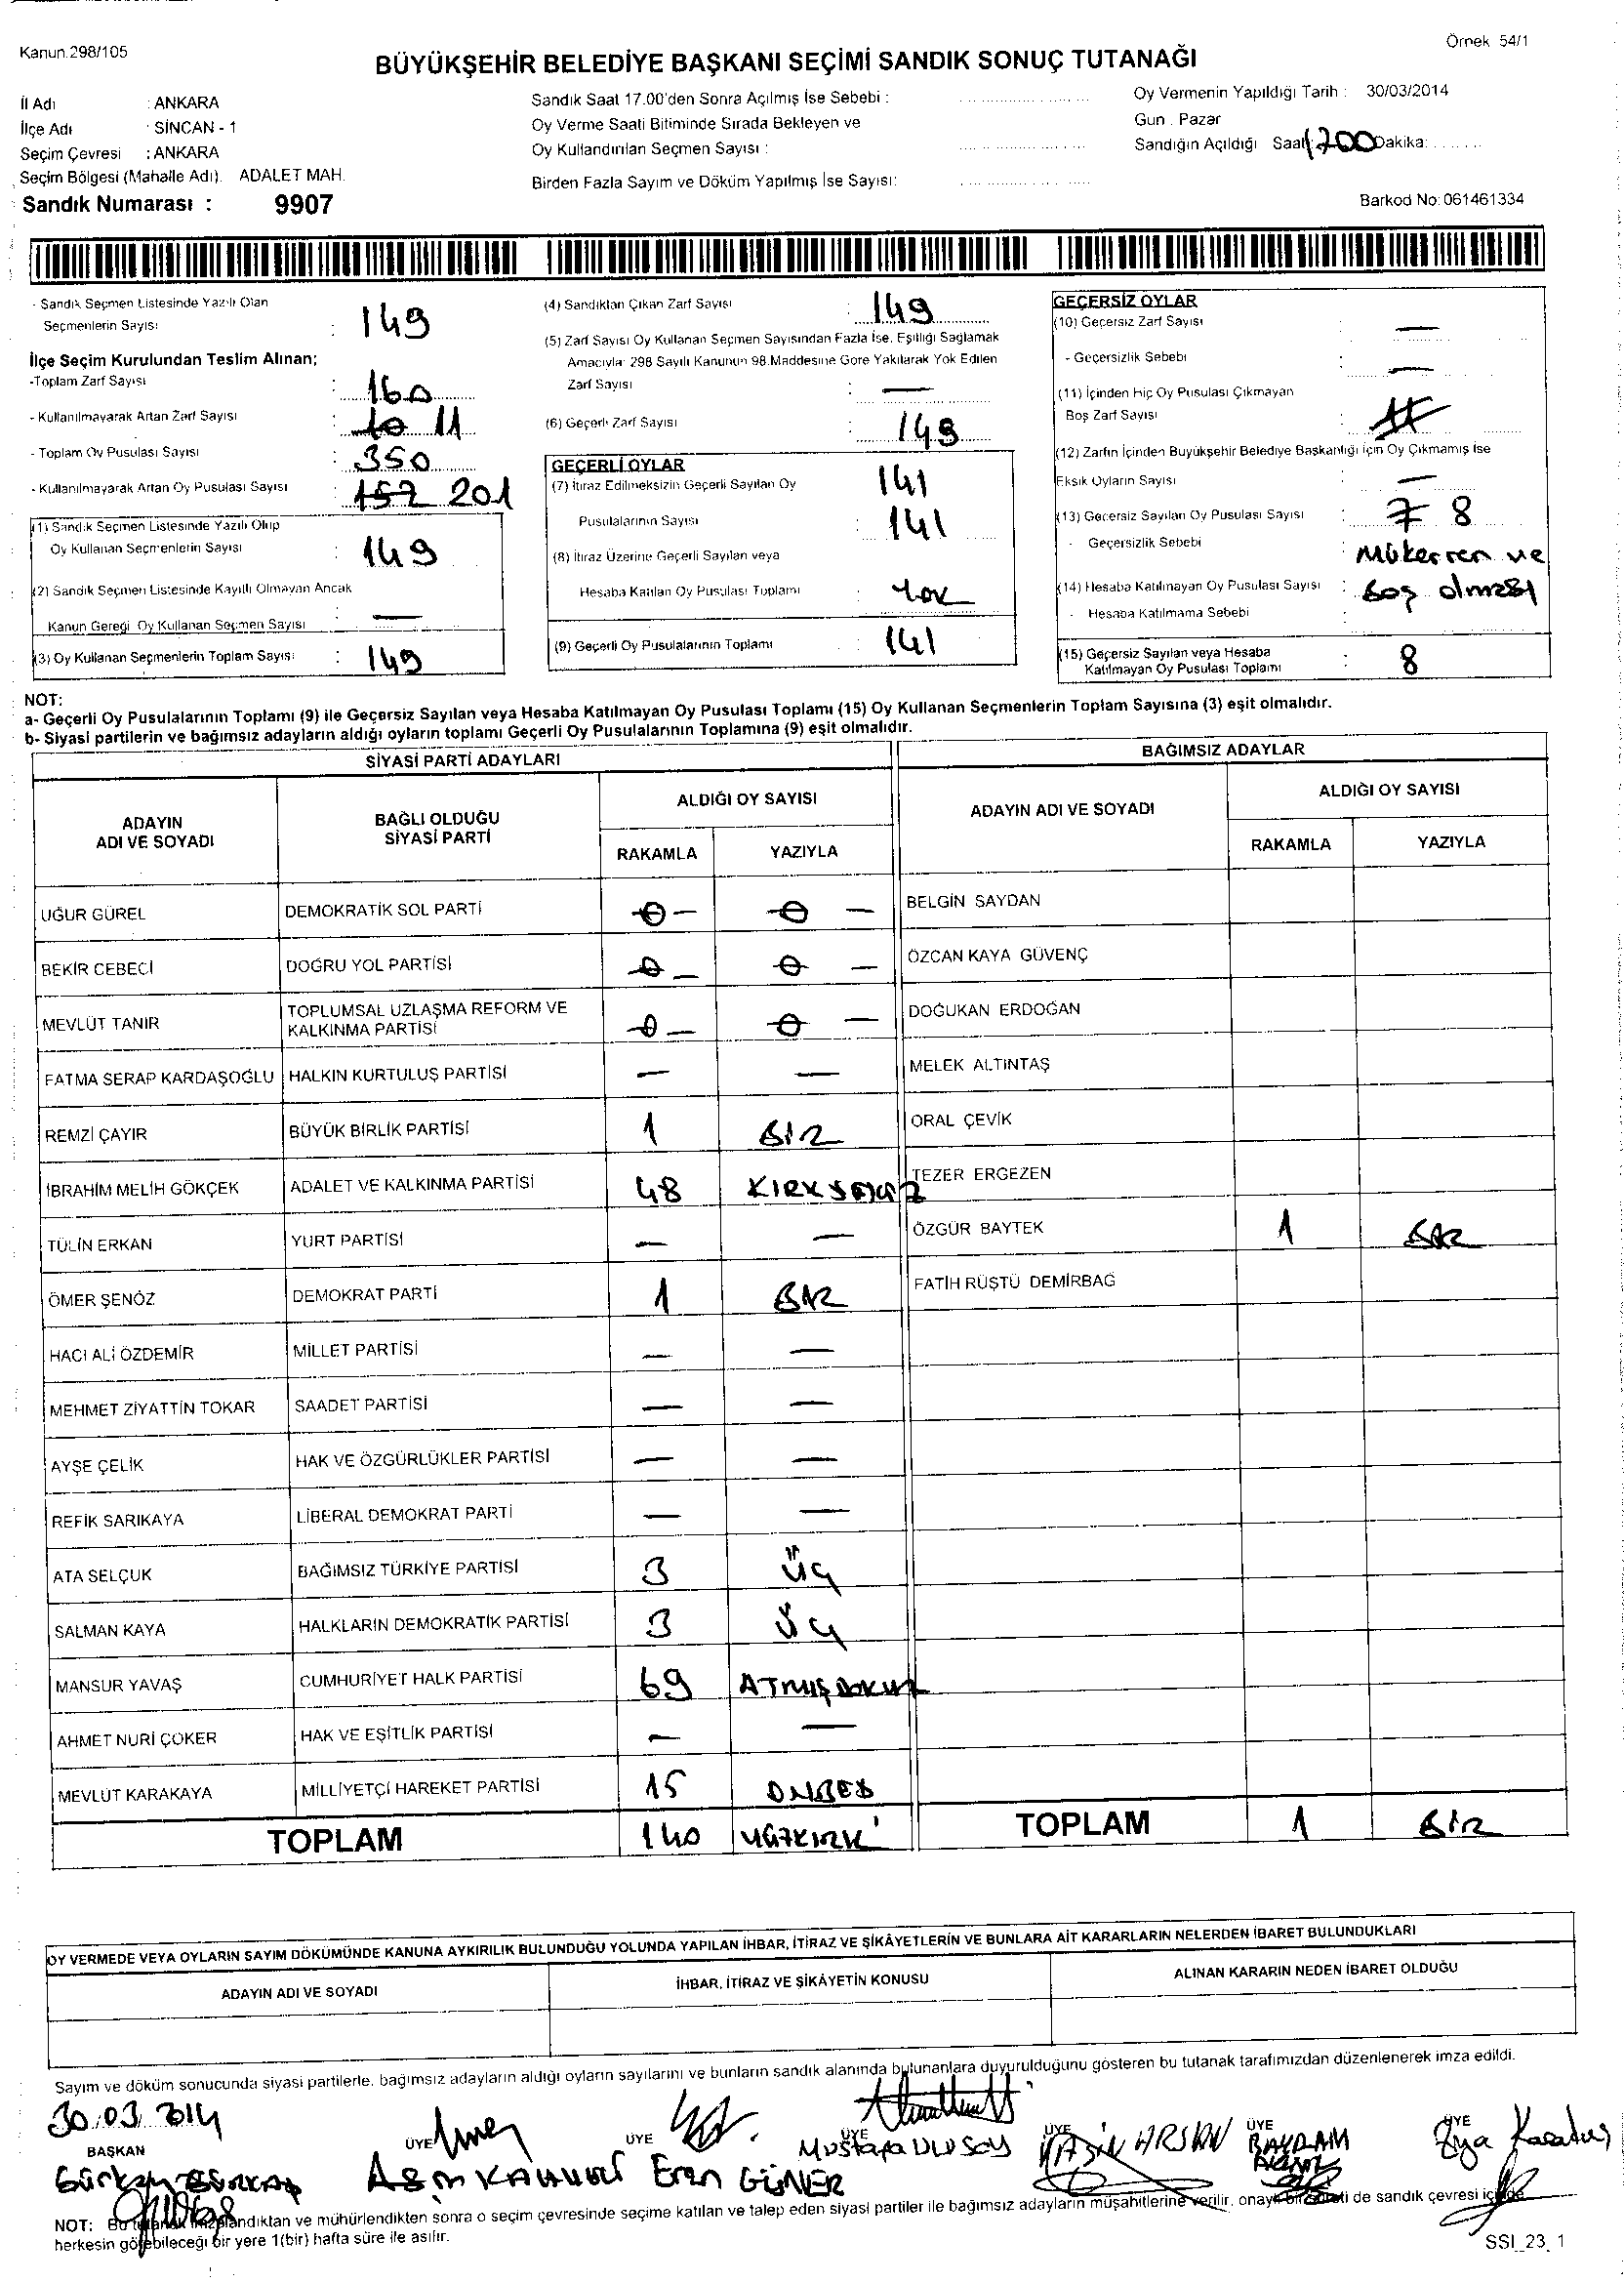 Kanun.298/105
Örnek 54/1
BÜYÜKŞEHİR BELEDİYE BAŞKANI SEÇİMİ SANDIK SONUÇ TUTANAĞI
İl Adı : ANKARA
İlçe Adı : SİNCAN - 1
Seçim Çevresi : ANKARA
Seçim Bölgesi (Mahalle Adı). ADALET MAH.
Sandık Numarası : 9907
Sandık Saat 17.00'den Sonra Açılmış İse Sebebi :
Oy Verme Saati Bitiminde Sırada Bekleyen ve
Oy Kullandırılan Seçmen Sayısı :
Birden Fazla Sayım ve Döküm Yapılmış İse Sayısı:
Oy Vermenin Yapıldığı Tarih : 30/03/2014
Gün . Pazar
Sandığın Açıldığı Saat: 1700 Dakika:
Barkod No: 061461334
- Sandık Seçmen Listesinde Yazılı Olan
Seçmenlerin Sayısı : 149
İlçe Seçim Kurulundan Teslim Alınan;
-Toplam Zarf Sayısı : 160
- Kullanılmayarak Artan Zarf Sayısı : 10 11
- Toplam Oy Pusulası Sayısı : 350
- Kullanılmayarak Artan Oy Pusulası Sayısı : 157 201
(1) Sandık Seçmen Listesinde Yazılı Olup
Oy Kullanan Seçmenlerin Sayısı : 149
(2) Sandık Seçmen Listesinde Kayıtlı Olmayan Ancak
Kanun Gereği Oy Kullanan Seçmen Sayısı : —
(3) Oy Kullanan Seçmenlerin Toplam Sayısı : 149
(4) Sandıktan Çıkan Zarf Sayısı : 149
(5) Zarf Sayısı Oy Kullanan Seçmen Sayısından Fazla İse, Eşitliği Sağlamak
Amacıyla 298 Sayılı Kanunun 98.Maddesine Göre Yakılarak Yok Edilen
Zarf Sayısı : —
(6) Geçerli Zarf Sayısı : 149
GEÇERLİ OYLAR
(7) İtiraz Edilmeksizin Geçerli Sayılan Oy 141
Pusulalarının Sayısı : 141
(8) İtiraz Üzerine Geçerli Sayılan veya
Hesaba Katılan Oy Pusulası Toplamı : YOK
(9) Geçerli Oy Pusulalarının Toplamı : 141
GEÇERSİZ OYLAR
(10) Geçersiz Zarf Sayısı : —
- Geçersizlik Sebebi : —
(11) İçinden Hiç Oy Pusulası Çıkmayan
Boş Zarf Sayısı :
(12) Zarfın İçinden Büyükşehir Belediye Başkanlığı İçin Oy Çıkmamış İse
Eksik Oyların Sayısı : —
(13) Geçersiz Sayılan Oy Pusulası Sayısı : 7 8
- Geçersizlik Sebebi : Mükerren ve
(14) Hesaba Katılmayan Oy Pusulası Sayısı : boş olması
- Hesaba Katılmama Sebebi :
(15) Geçersiz Sayılan veya Hesaba
Katılmayan Oy Pusulası Toplamı : 8
NOT:
a- Geçerli Oy Pusulalarının Toplamı (9) ile Geçersiz Sayılan veya Hesaba Katılmayan Oy Pusulası Toplamı (15) Oy Kullanan Seçmenlerin Toplam Sayısına (3) eşit olmalıdır.
b- Siyasi partilerin ve bağımsız adayların aldığı oyların toplamı Geçerli Oy Pusulalarının Toplamına (9) eşit olmalıdır.
SİYASİ PARTİ ADAYLARI
ADAYIN ADI VE SOYADI
BAĞLI OLDUĞU SİYASİ PARTİ
ALDIĞI OY SAYISI
RAKAMLA YAZIYLA
UĞUR GÜREL DEMOKRATİK SOL PARTİ 0 — 0 —
BEKİR CEBECİ DOĞRU YOL PARTİSİ 0 — 0 —
MEVLÜT TANIR TOPLUMSAL UZLAŞMA REFORM VE KALKINMA PARTİSİ 0 — 0 —
FATMA SERAP KARDAŞOĞLU HALKIN KURTULUŞ PARTİSİ — —
REMZİ ÇAYIR BÜYÜK BİRLİK PARTİSİ 1 BİR
İBRAHİM MELİH GÖKÇEK ADALET VE KALKINMA PARTİSİ 48 KIRKSEKİZ
TÜLİN ERKAN YURT PARTİSİ — —
ÖMER ŞENÖZ DEMOKRAT PARTİ 1 BİR
HACI ALİ ÖZDEMİR MİLLET PARTİSİ — —
MEHMET ZİYATTİN TOKAR SAADET PARTİSİ — —
AYŞE ÇELİK HAK VE ÖZGÜRLÜKLER PARTİSİ — —
REFİK SARIKAYA LİBERAL DEMOKRAT PARTİ — —
ATA SELÇUK BAĞIMSIZ TÜRKİYE PARTİSİ 3 ÜÇ
SALMAN KAYA HALKLARIN DEMOKRATİK PARTİSİ 3 ÜÇ
MANSUR YAVAŞ CUMHURİYET HALK PARTİSİ 69 ATMIŞDOKUZ
AHMET NURİ ÇOKER HAK VE EŞİTLİK PARTİSİ — —
MEVLÜT KARAKAYA MİLLİYETÇİ HAREKET PARTİSİ 15 ONBEŞ
TOPLAM 140 YÜZKIRK
BAĞIMSIZ ADAYLAR
ADAYIN ADI VE SOYADI
ALDIĞI OY SAYISI
RAKAMLA YAZIYLA
BELGİN SAYDAN
ÖZCAN KAYA GÜVENÇ
DOĞUKAN ERDOĞAN
MELEK ALTINTAŞ
ORAL ÇEVİK
TEZER ERGEZEN
ÖZGÜR BAYTEK 1 BİR
FATİH RÜŞTÜ DEMİRBAĞ
TOPLAM 1 BİR
OY VERMEDE VEYA OYLARIN SAYIM DÖKÜMÜNDE KANUNA AYKIRILIK BULUNDUĞU YOLUNDA YAPILAN İHBAR, İTİRAZ VE ŞİKÂYETLERİN VE BUNLARA AİT KARARLARIN NELERDEN İBARET BULUNDUKLARI
ADAYIN ADI VE SOYADI
İHBAR, İTİRAZ VE ŞİKÂYETİN KONUSU
ALINAN KARARIN NEDEN İBARET OLDUĞU
Sayım ve döküm sonucunda siyasi partilerle, bağımsız adayların aldığı oyların sayılarını ve bunların sandık alanında bulunanlara duyurulduğunu gösteren bu tutanak tarafımızdan düzenlenerek imza edildi.
30.03.2014
BAŞKAN ÜYE ÜYE ÜYE ÜYE ÜYE ÜYE
Eren GÜNER
Mustafa ULUSOY
YASİN ARSLAN
BAYRAM
Ziya
NOT: Bu tutanak imzalandıktan ve mühürlendikten sonra o seçim çevresinde seçime katılan ve talep eden siyasi partiler ile bağımsız adayların müşahitlerine verilir, onaylı bir sureti de sandık çevresi içinde
herkesin görebileceği bir yere 1(bir) hafta süre ile asılır.
SSI_23_1